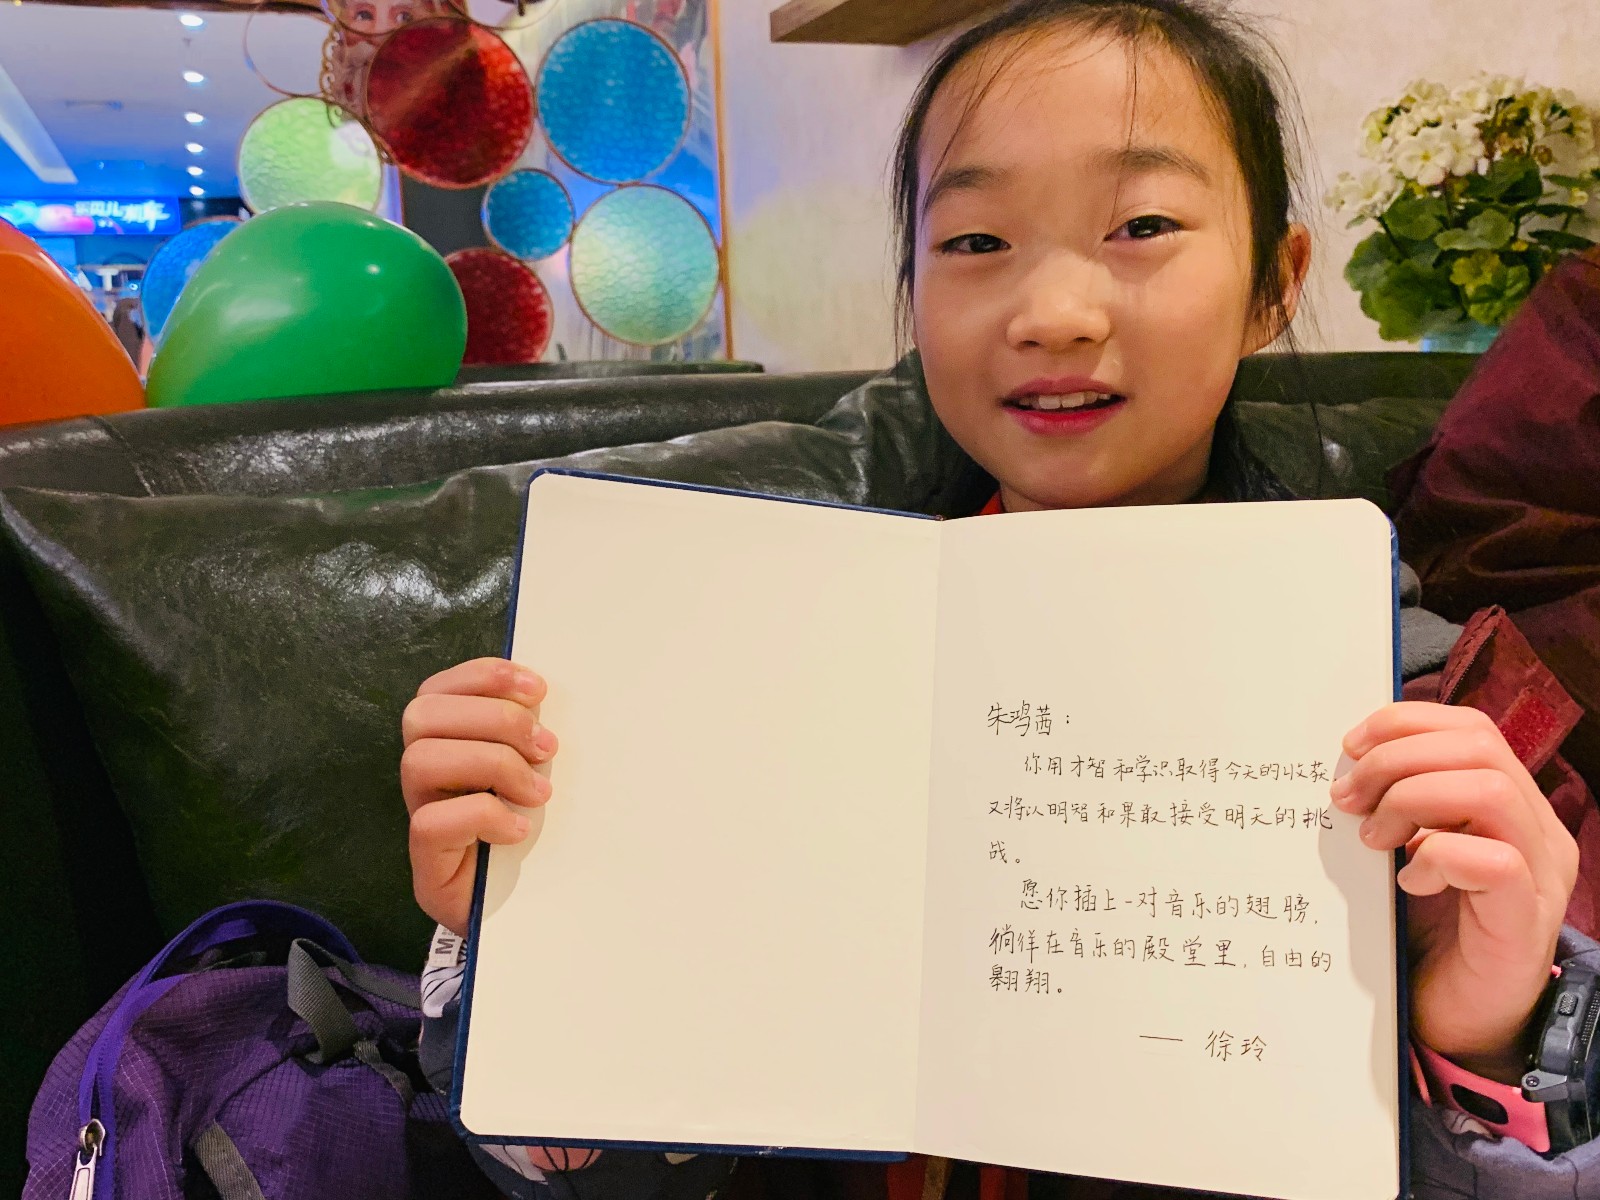 朱鸿茜：
你用才智和学识取得今天的收获，
又将以明智和果敢接受明天的挑
战。
愿你插上一对音乐的翅膀，
徜徉在音乐的殿堂里，自由的
翱翔。
—— 徐玲
M